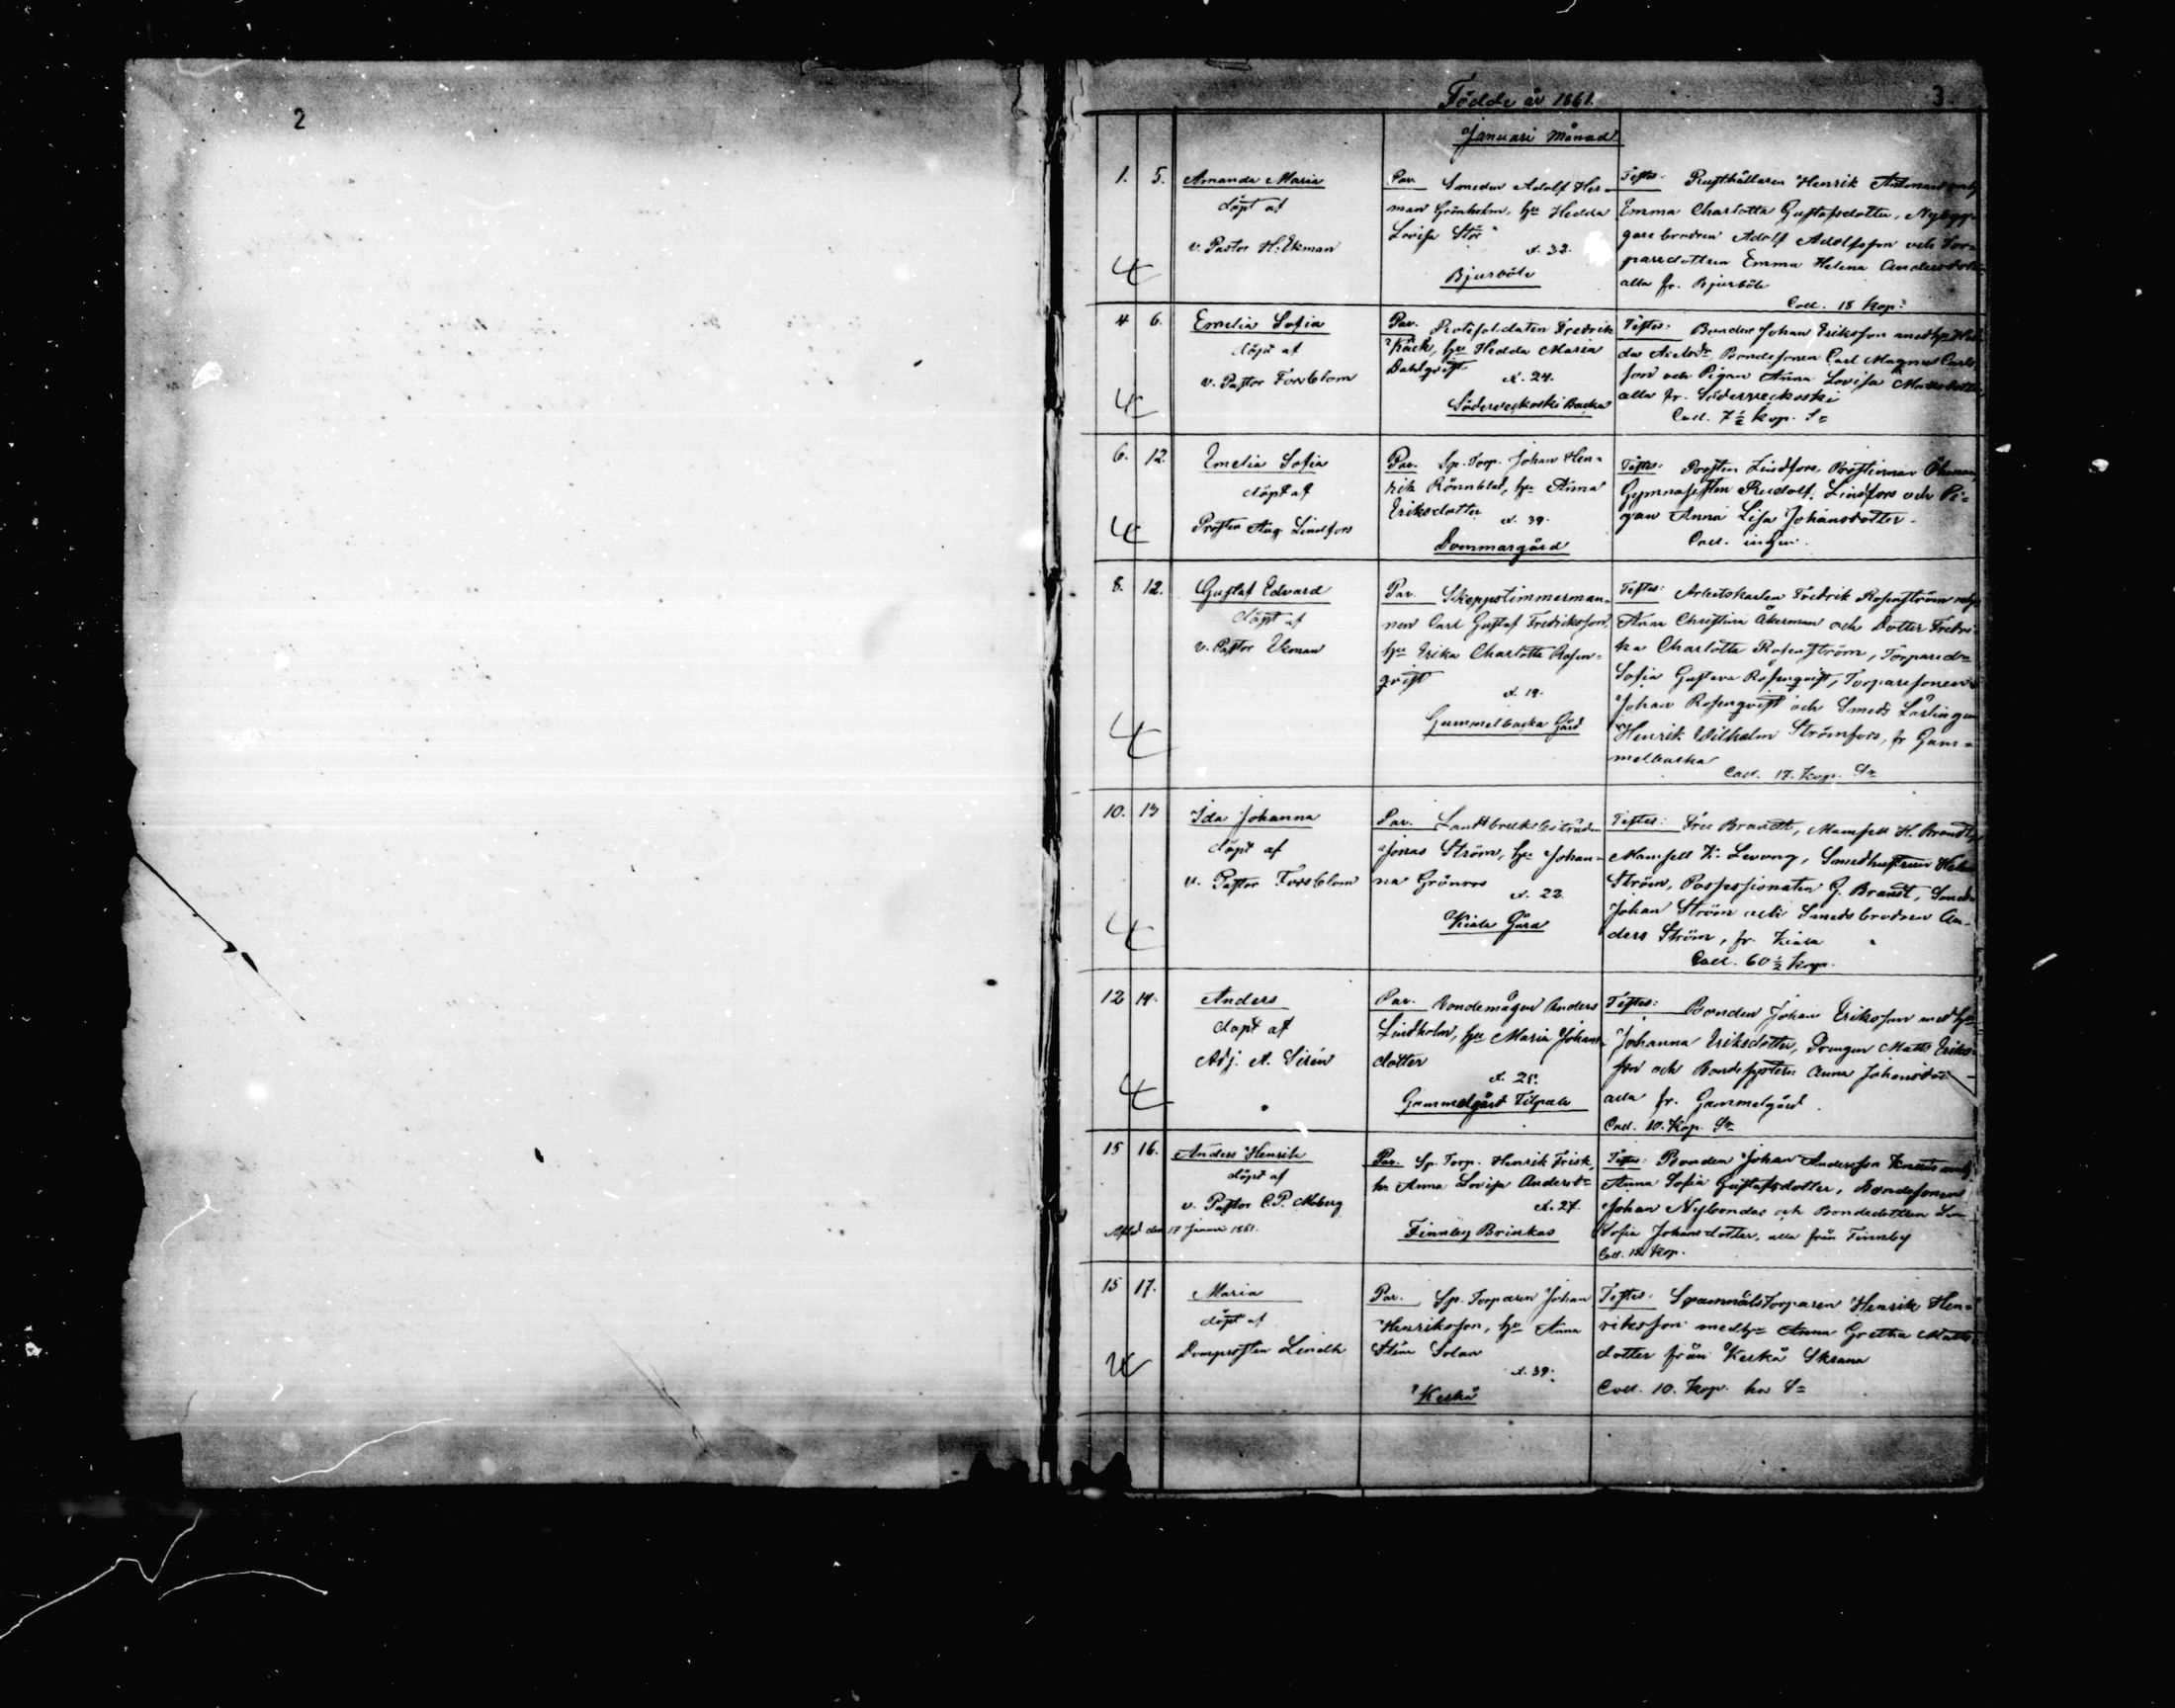 2
Födde år 1861.
3
Januari Månad
1. 5. Amanda Maria
döpt af
v. Pastor H. Ekman
Par. Smeden Adolf Her-
man Grönholm, hu Hedda
Lovisa Stör
d. 32.
Bjurböle
Testes: Rusthållaren Henrik
Emma Charlotta Gustafsdotter, Nybyg-
gare brodren Adolf Adolfsson och Tor-
paredottren Emma Helena Andersdotter
alla fr. Bjurböle
Coll. 18 kop.
4 6. Emelia Sofia
döpt af
v. Pastor Forsblom
Par. Rotesoldaten Fredrik
Käck, hu Hedda Maria
Dahlqvist
d. 24.
Söderveckoski Backa
Testes: Bonden Johan Eriksson med hu Hed-
da Bondesonen Carl Magnus Carls-
son och Pigan Anna Lovisa Mattsdotter
alla fr. Söderveckoski
Coll. 7½ kop. Sr
6. 12. Emelia Sofia
döpt af
Prosten Aug. Lindfors
Par. Sp. Torp. Johan Hen-
rik Rönnblad, hu Anna
Eriksdotter
d. 39.
Dommargård
Testes: Prosten Lindfors, Prostinnan
Gymnasisten Rudolf Lindfors och Pi-
gan Anna Lisa Johansdotter.
Coll. ingen.
8. 12. Gustaf Edvard
döpt af
v. Pastor Ekman
Par. Skeppstimmerman-
nen Carl Gustaf Fredriksson,
hu Erika Charlotta Rosen-
qvist
d. 19.
Gammelbacka Gård
Testes: Arbetskarlen Fredrik Rosenström
Anna Christina Åkerman och Dotter Fredri-
ka Charlotta Rosenström, Torpared
Sofia Gustava Rosenqvist, Torparesonen
Johan Rosenqvist och Smeds Lärlingen
Henrik Wilhelm Strömfors, fr Gam-
melbacka
Coll. 17. kop. Sr
10. 13 Ida Johanna
döpt af
v. Pastor Forsblom
Par. Landtbruksbiträden
Jonas Ström, hu Johan-
na Grönroos
d. 22.
Kiala Gård
Testes: Fru Brandt, Mamsell H. Brandt,
Mamsell Smedhustrun
Ström, Possessionaten G. Brandt, Smeden
Johan Ström och Smedsbrodren An-
ders Ström, fr. Kiala
Coll. 60½ kop.
12 14. Anders
döpt af
Adj. A. Sirén
Par. Bondemågen Anders
Lindholm, hu Maria Johans-
dotter
d. 28.
Gammelgård Tilpala
Testes: Bonden Johan Eriksson med hu
Johanna Eriksdotter, Drengen Matts Eriks-
son och Bondesystern Anna Johansdot
alla fr. Gammelgård.
Coll. 10. kop. Sr
15 16. Anders Henrik
döpt af
v. Pastor C.P. Moberg
Afled den 17 Januari 1861.
Par. Sp. Torp. Henrik Frisk,
hu Anna Lovisa Andersdr
d. 27.
Finnby Brinkas
Testes: Bonden Johan Andersson
Anna Sofia Gustafsdotter, Bondesonen
Johan Nybondas och Bondedottren
Sofia Johansdotter, alla från Finnby
Coll. 18 kop.
15 17. Maria
döpt af
Domprosten Lindh
Par. Sp. Torparen Johan
Henriksson, hu Anna
Stina
d. 39.
Kerkå
Testes: Spannmålstorparen Henrik Hen-
riksson med hu Anna Gretha Matts
dotter från Kerkå Skrana
Coll. 10. kop. Sr